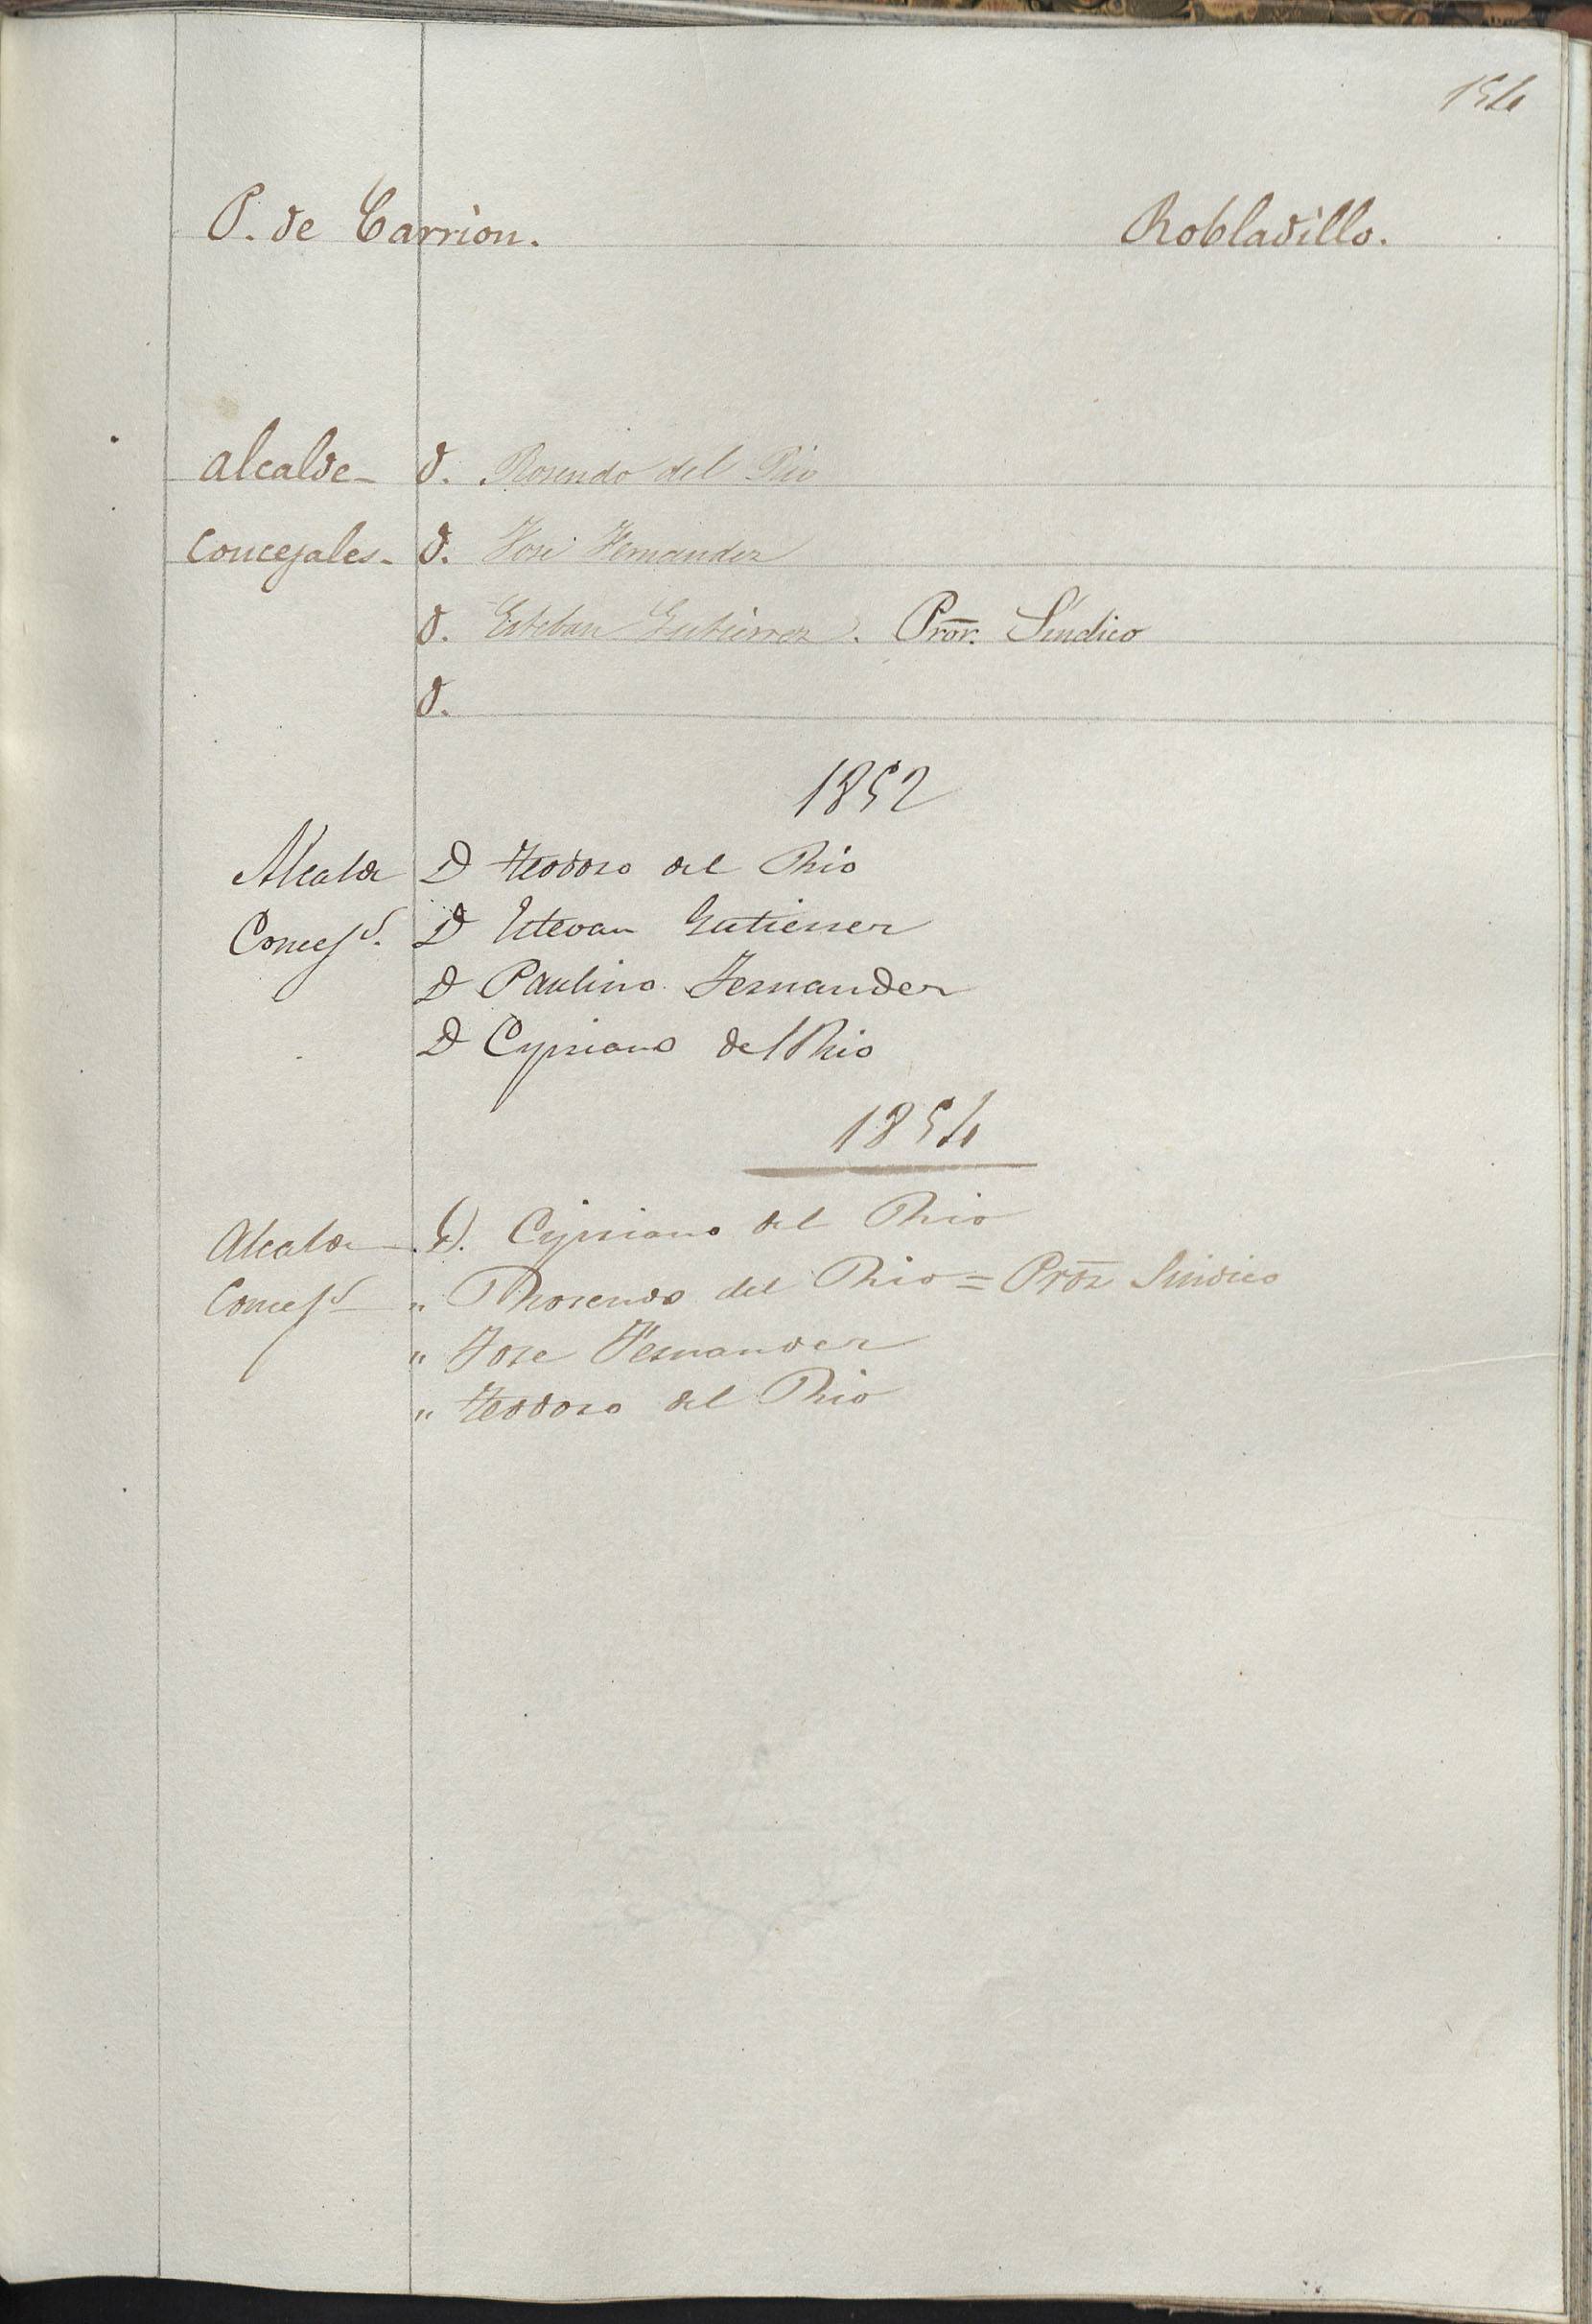 154
P. de Carrion. Robladillo.
Alcalde - D. Rosendo del Rio
Concejales - D. José Fernandez
D. Esteban Gutierrez. Pror. Síndico
D.
1852
Alcalde D Teodoro del Rio
Concejs. D Estevan Gutierrez
D Paulino Fernandez
D Cypriano del Rio
1854
Alcalde D. Cypriano del Rio
Concejs " Rosendo del Rio = Pror Sindico
" Jose Fernandez
" Teodoro del Rio